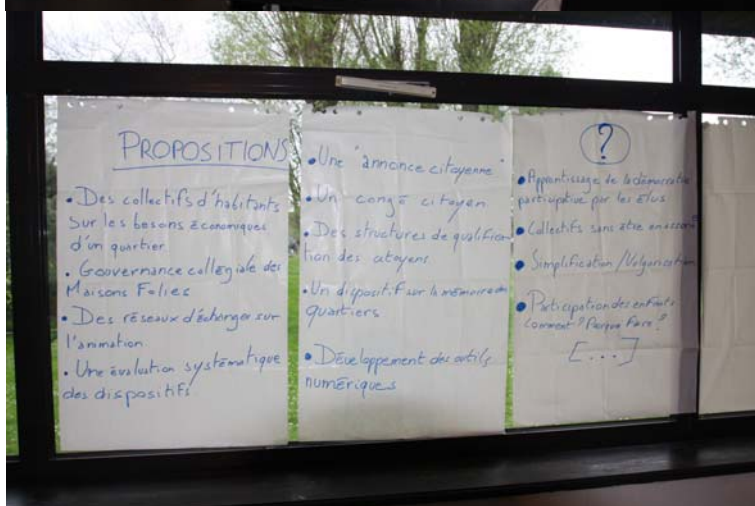 PROPOSITIONS
• Des collectifs d'habitants
sur les besoins économiques
d'un quartier
• Gouvernance collégiale des
Maisons Folies
• Des réseaux d'échanger sur
l'animation
• Une évaluation systématique
des dispositifs
• Une "annonce citoyenne"
• Un congé citoyen
• Des structures de qualifica-
tion des citoyens
• Un dispositif sur la mémoire des
quartiers
• Développement des outils
numériques
?
• Apprentissage de la démocratie
participative par les élus
• Collectifs sans être en
• Simplification / Vulgarisation
• Participation des enfants
comment? Pourquoi faire?
[...]